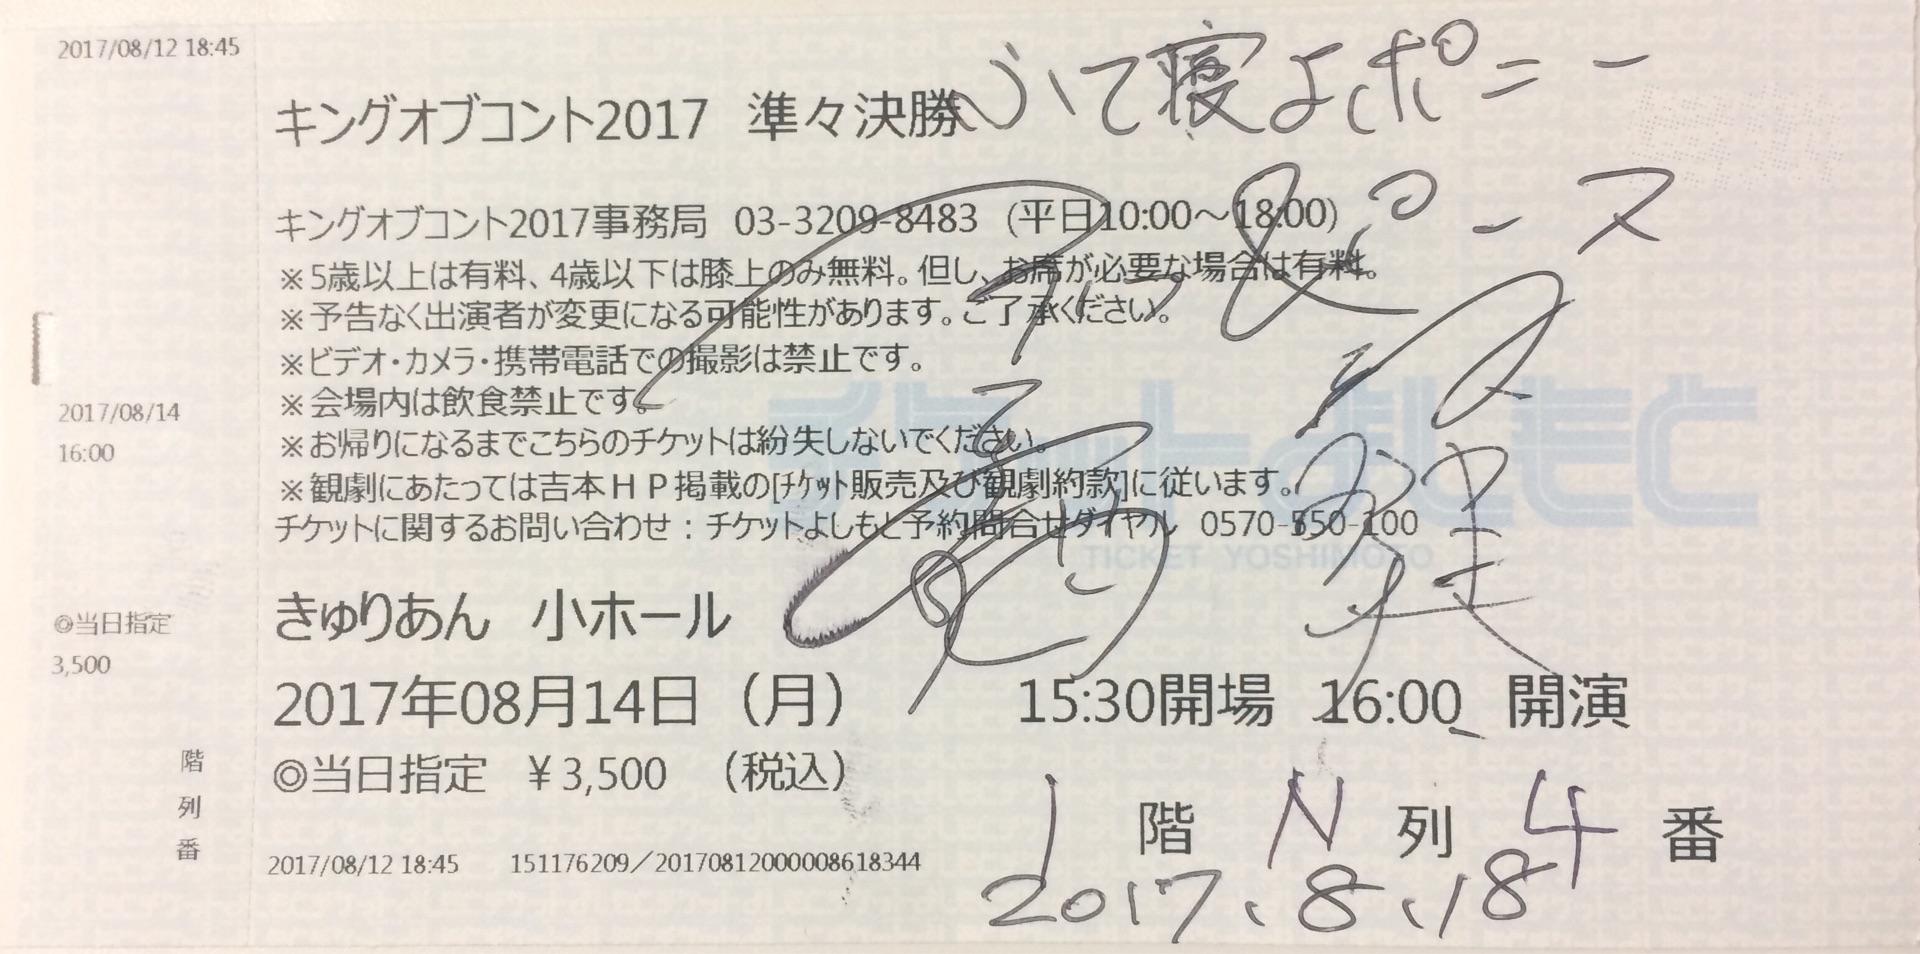 2017/08/12 18:45
キングオブコント2017 準々決勝
ぶて寝よポニー
キングオブコント2017事務局 03-3209-8483 (平日10:00～18:00)
ピース
※5歳以上は有料、4歳以下は膝上のみ無料。但し、お席が必要な場合は有料。
※予告なく出演者が変更になる可能性があります。ご了承ください。
※ビデオ・カメラ・携帯電話での撮影は禁止です。
※会場内は飲食禁止です。
※お帰りになるまでこちらのチケットは紛失しないでください。
※観劇にあたっては吉本HP掲載の[ﾁｹｯﾄ販売及び観劇約款]に従います。
チケットに関するお問い合わせ：チケットよしもと予約問合せダイヤル 0570-550-100
チケットよしもと
TICKET YOSHIMOTO
2017/08/14
16:00
きゅりあん 小ホール
◎当日指定
3,500
2017年08月14日（月） 15:30開場 16:00 開演
◎当日指定 ￥3,500 （税込）
階
列
番
1 階 N 列 4 番
2017/08/12 18:45 151176209／20170812000008618344
2017.8.18